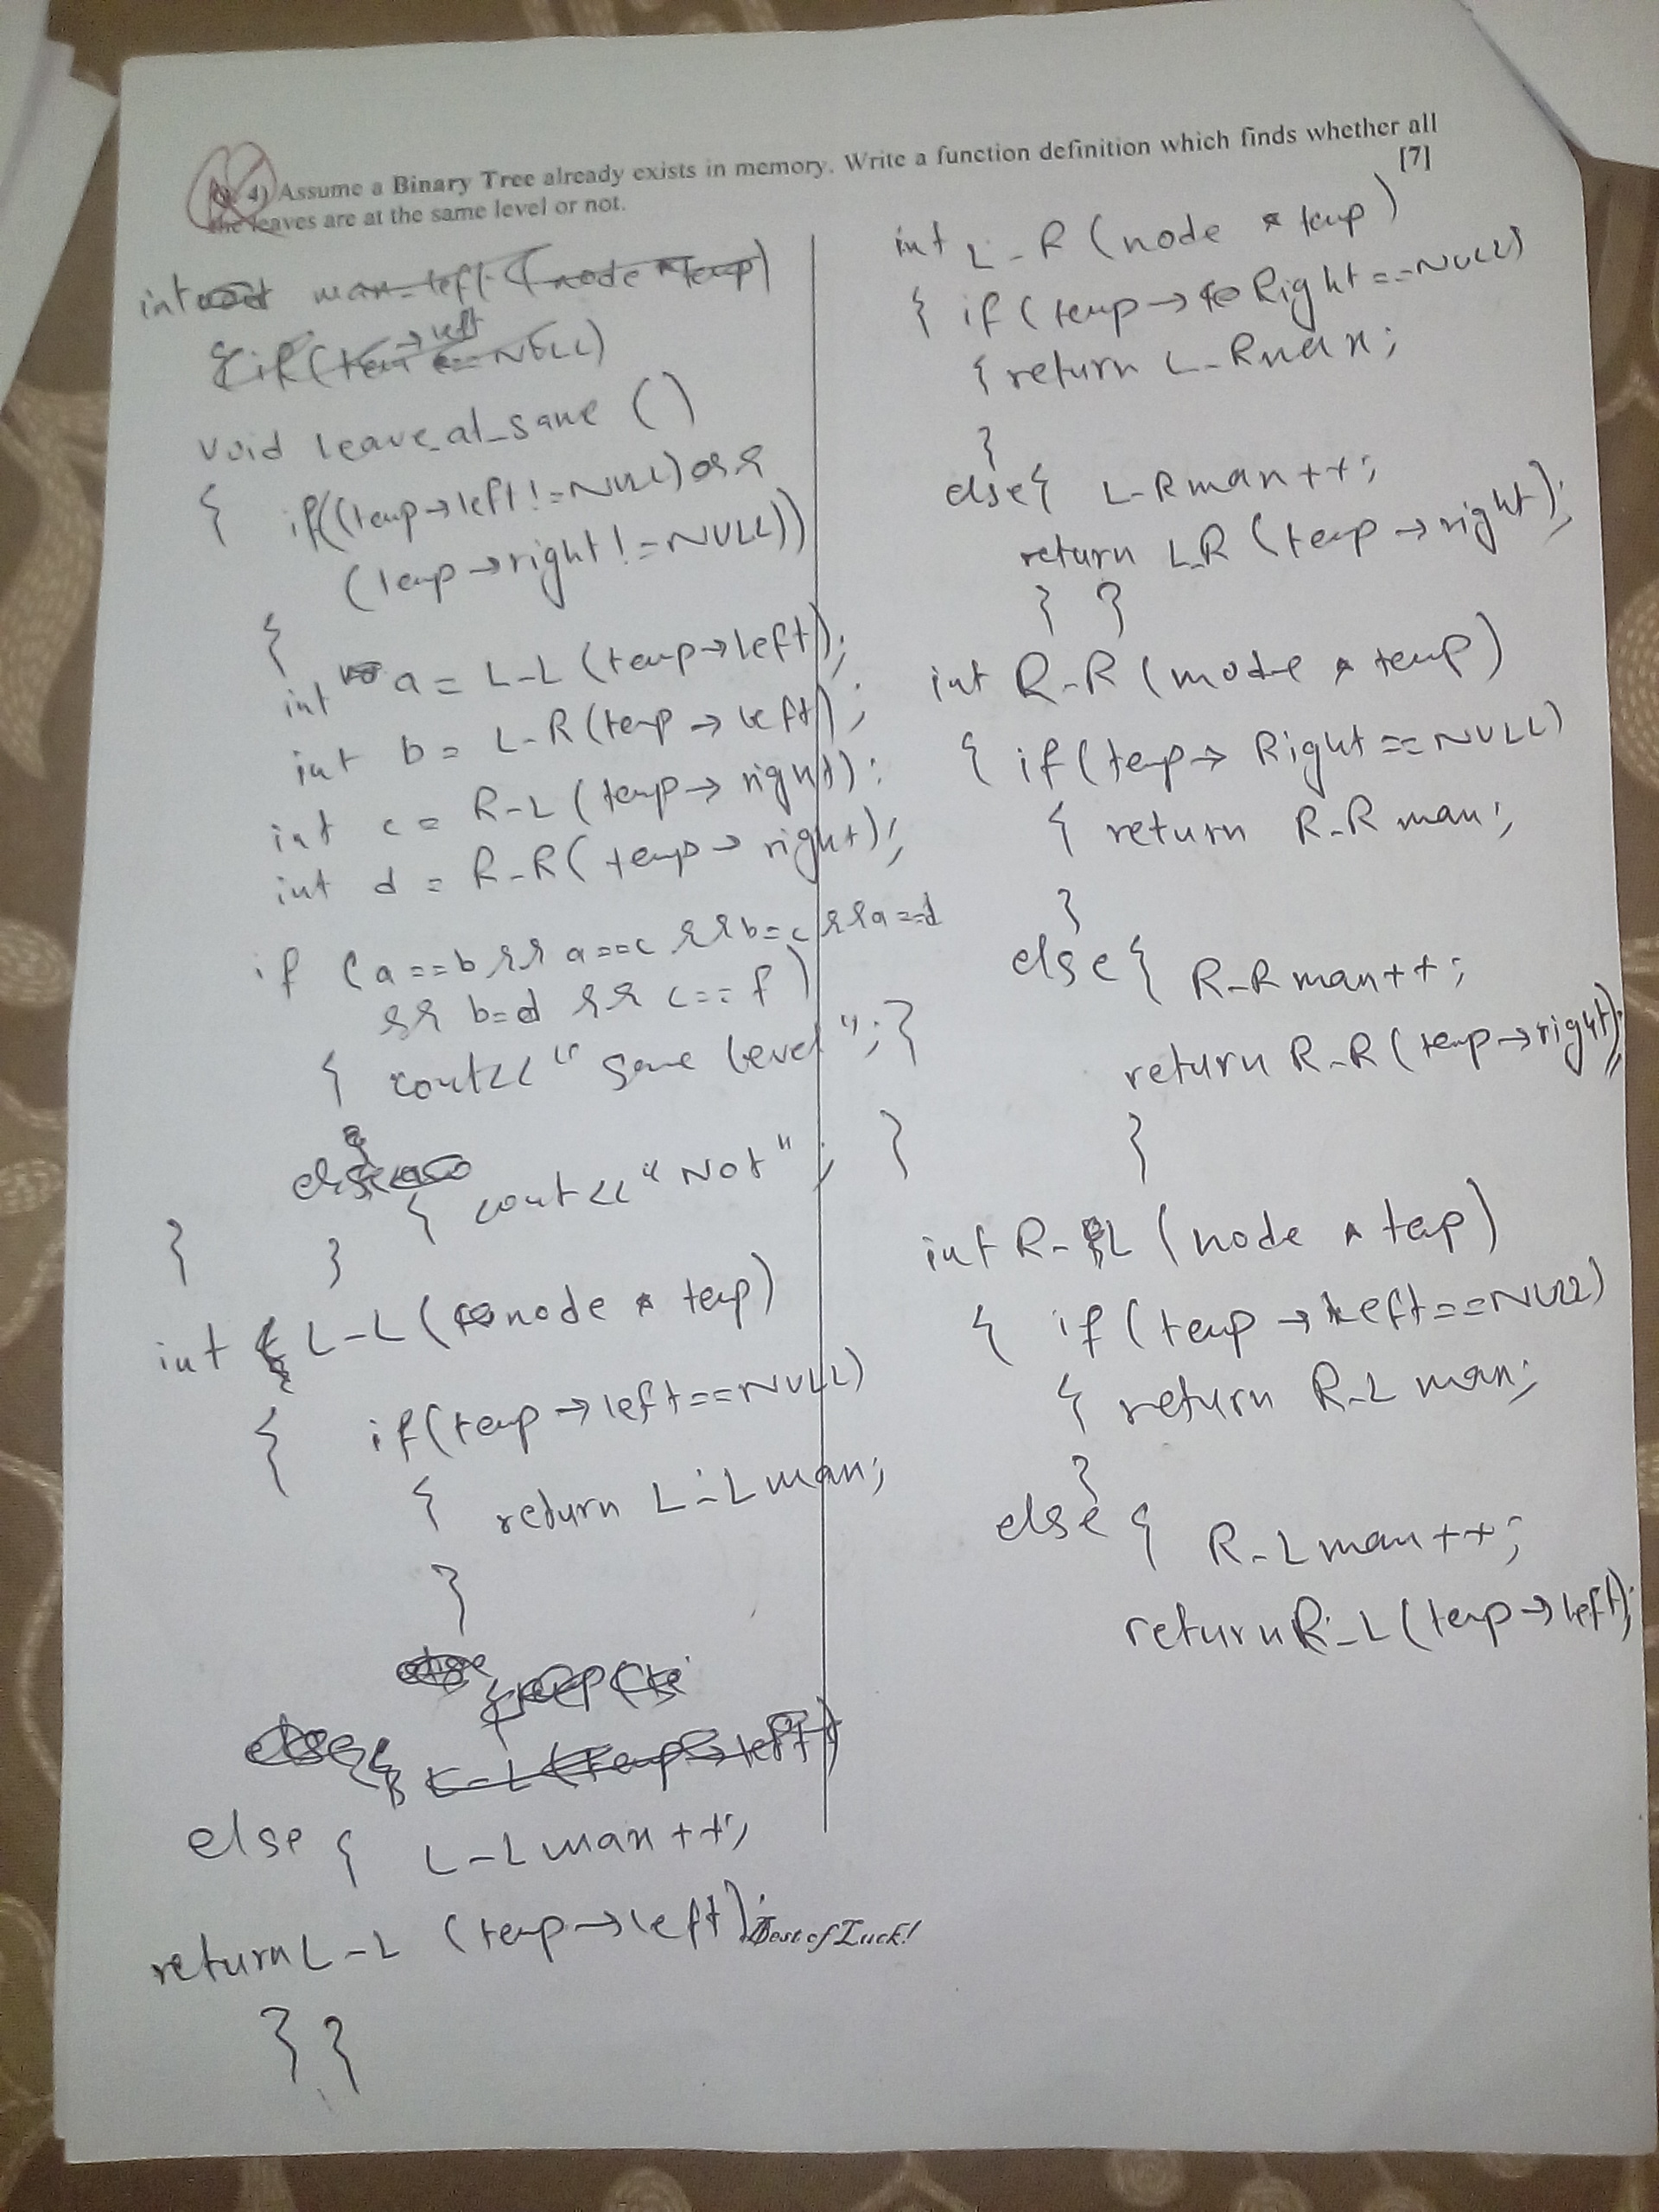 Q. 4) Assume a Binary Tree already exists in memory. Write a function definition which finds whether all
the leaves are at the same level or not. [7]
int max-left (node *temp)
{if(tem→left ==NULL)
void leave_at_same ()
{ if((temp→left!=NULL)&&
(temp→right!=NULL))
{
int a = L-L (temp→left);
int b = L-R(temp→left);
int c = R-L (temp→right);
int d = R-R(temp→right);
if (a==b && a==c && b=c && a==d
&& b=d && c==f)
{ cout<<"Same level";}
else
{ cout<<"Not"; }
} }
int L-L (node * temp)
{ if(temp→left==NULL)
{ return L-Lmax;
}
else { L-Lmax++;
return L-L (temp→left);
} }
Best of Luck!
int L-R (node * temp)
{ if(temp→Right==NULL)
{return L-Rmax;
}
else{ L-Rmax++;
return L-R (temp→right);
} }
int R-R (node * temp)
{ if(temp→Right==NULL)
{ return R-Rmax;
}
else{ R-Rmax++;
return R-R(temp→right);
}
int R-L (node * temp)
{ if(temp→left==NULL)
{ return R-Lmax;
}
else { R-Lmax++;
return R-L(temp→left);